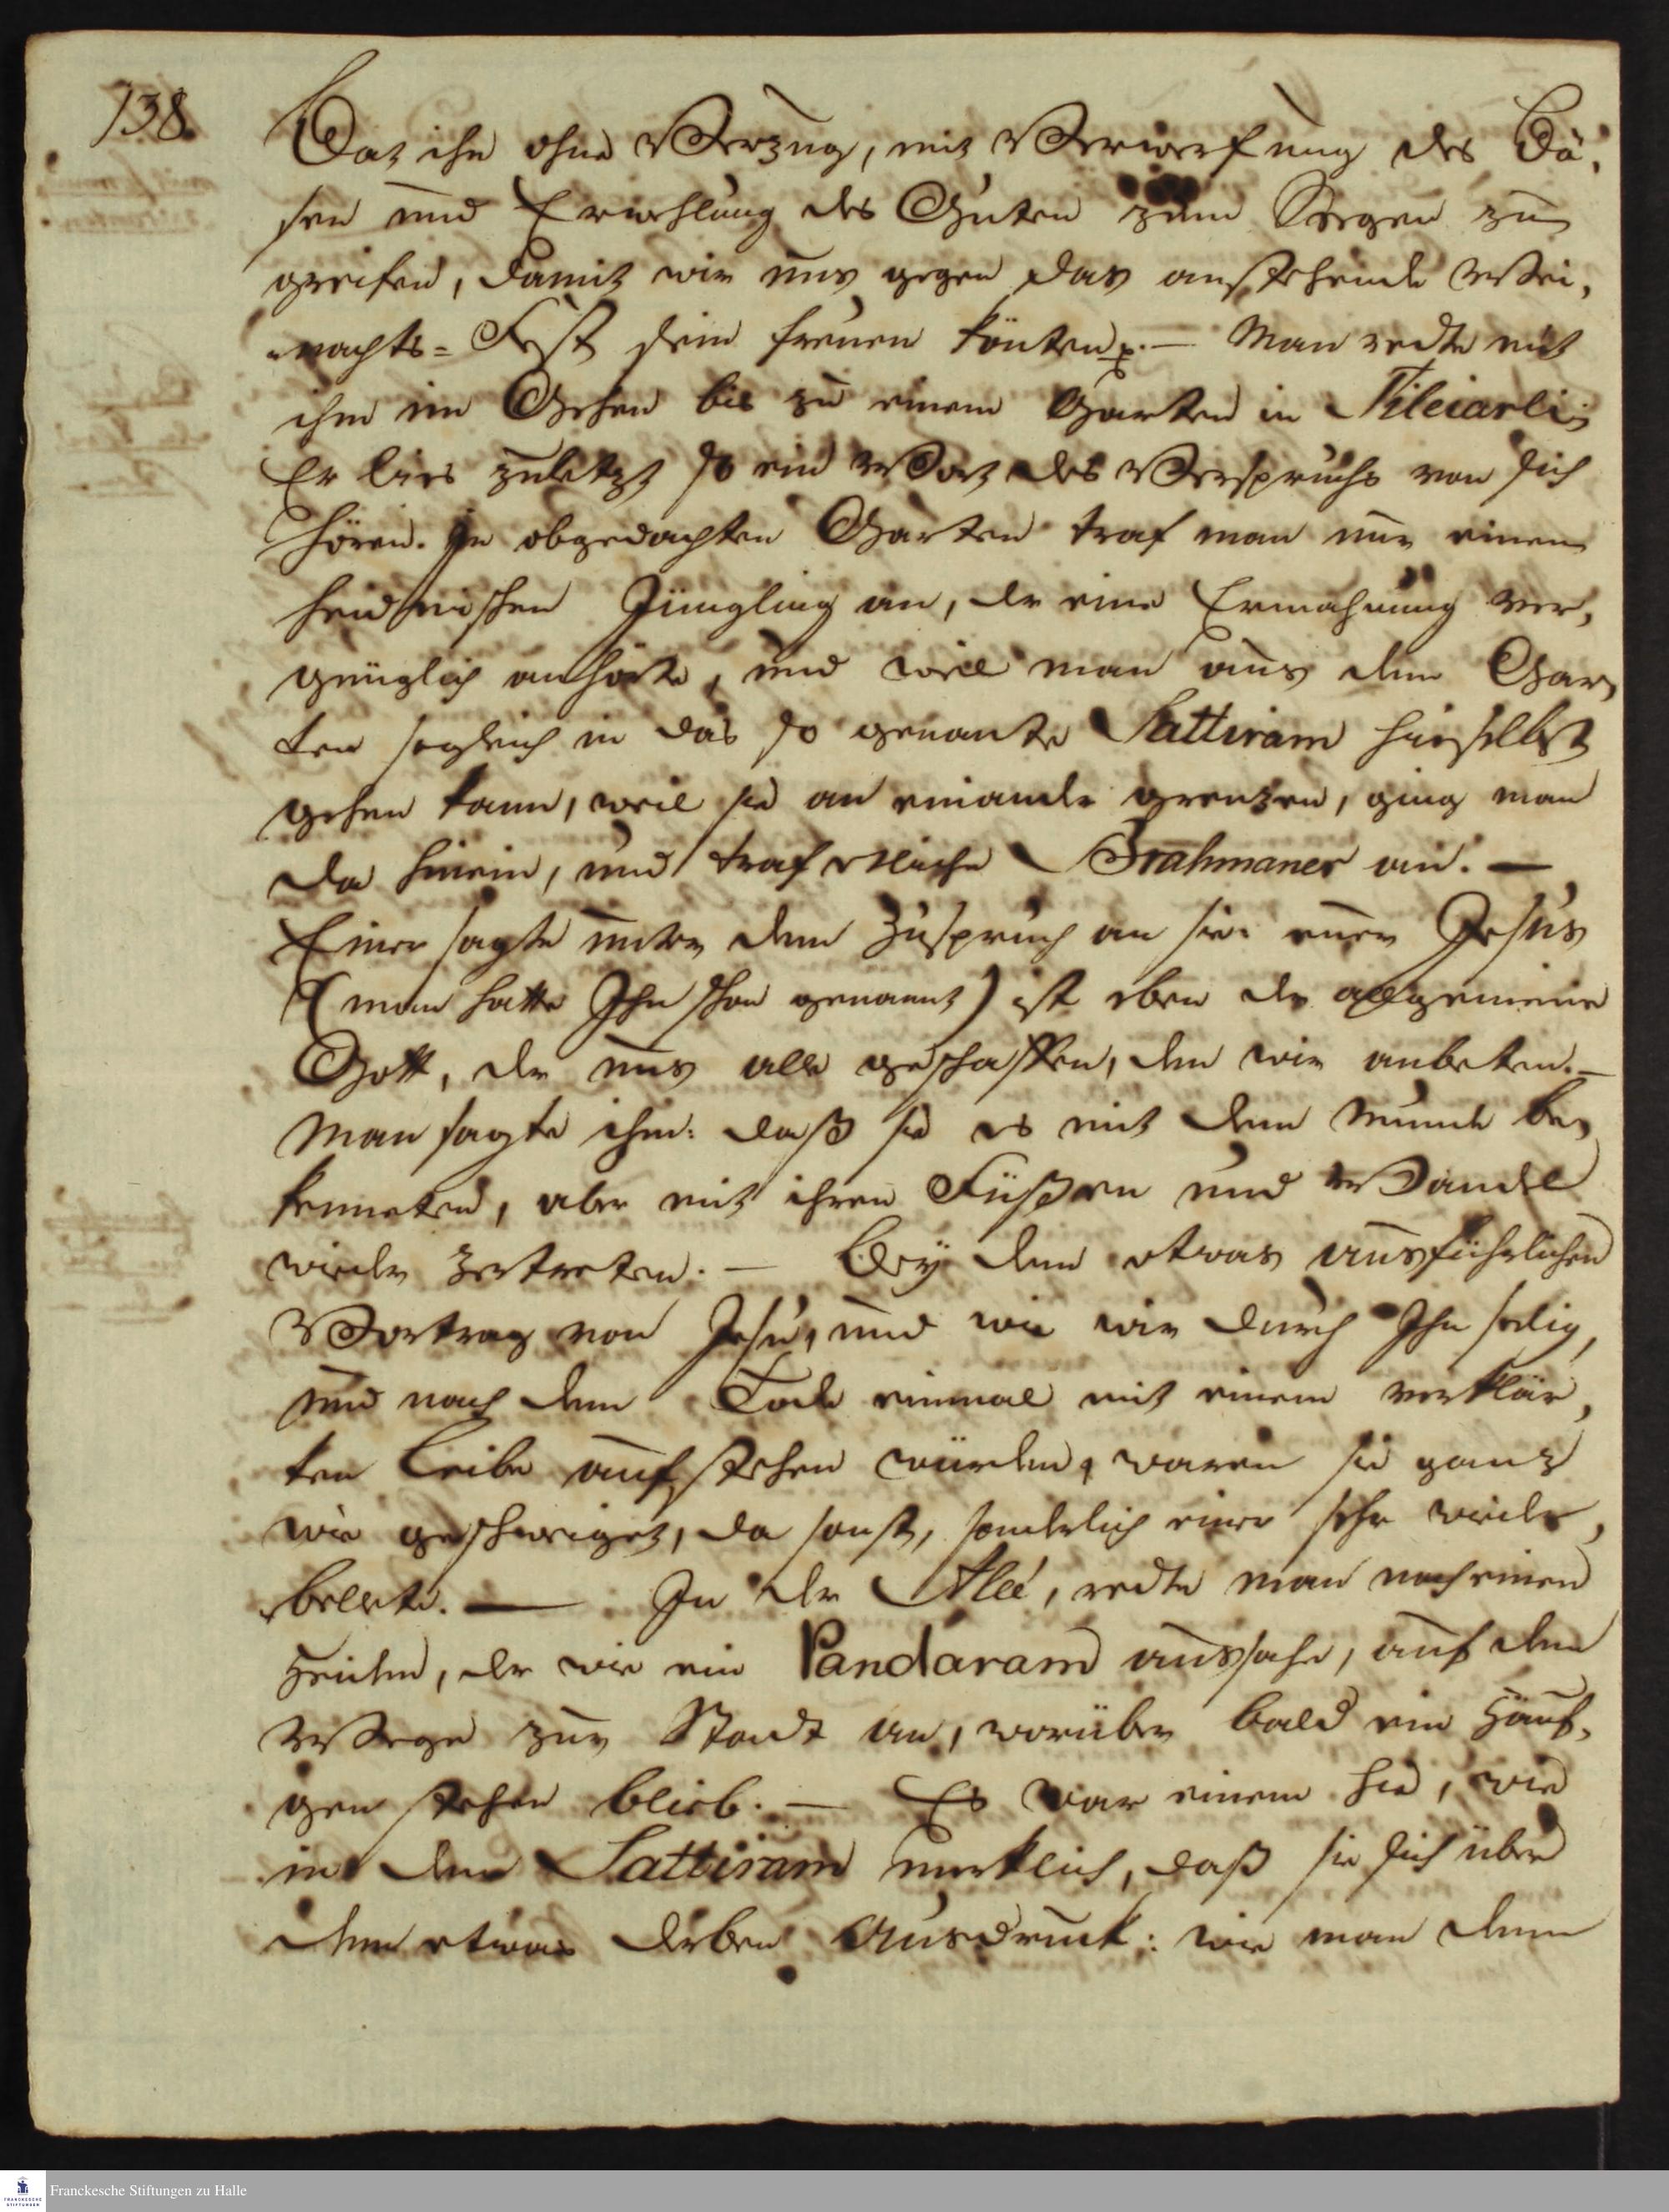 138.
Bat ihn ohne Verzug, mit Verwerfung des Bö-
sen und Erwehlung des Guten zum Segen zu
greifen, damit wir uns gegen das anstehende Wei-
nachts-Fest sein freuen könten p. — Man redte mit
ihm im Gehen bis zu einem Garten in Tileiarli;
Er lies zuletzt so ein Wort des Verspruchs von sich
hören. In obgedachten Garten traf man nur einen
heidnischen Jüngling an, der eine Ermahnung ver-
gnüglich anhörte, und weil man aus dem Gar-
ten sogleich in das so genante Sattiram hieselbst
gehen kann, weil sie an einander grenzen, ging man
da hinein, und traf etliche Brahmaner an. —
Einer sagte unter dem Zuspruch an sie: euer Jesus
(man hatte Ihn schon genannt) ist eben der allgemeine
Gott, der uns alle geschaffen, den wir anbeten. —
Man sagte ihm: daß sie es mit dem Munde be-
kenneten, aber mit ihren Füßen und Wandel
wieder zertreten. — Bey dem etwas ausführlichen
Vortrag von Jesu, und wie wir durch Ihn selig,
und nach dem Tode einmal mit einem verklär-
ten Leibe aufstehen würden, waren sie ganz
wie geschweiget, da sonst, sonderlich einer sehr wieder-
bellete. — In der Alleé, redte man noch einen
Heiden, der wie ein Pandaram aussahe, auf dem
Wege zur Stadt an, worüber bald ein Häuf-
gen stehen blieb. — Es war einem hie, wie
in dem Sattiram merklich, daß sie sich über
dem etwas derben Ausdruck: wie man dem
Franckesche Stiftungen zu Halle